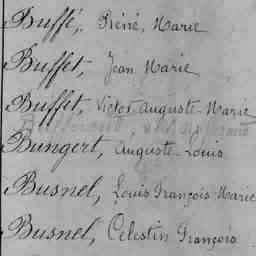 Buffé, Réné, Marie
Buffet, Jean Marie
Buffet, Victor Auguste Marie
Bungert, Auguste Louis
Busnel, Louis François Marie
Busnel, Célestin François